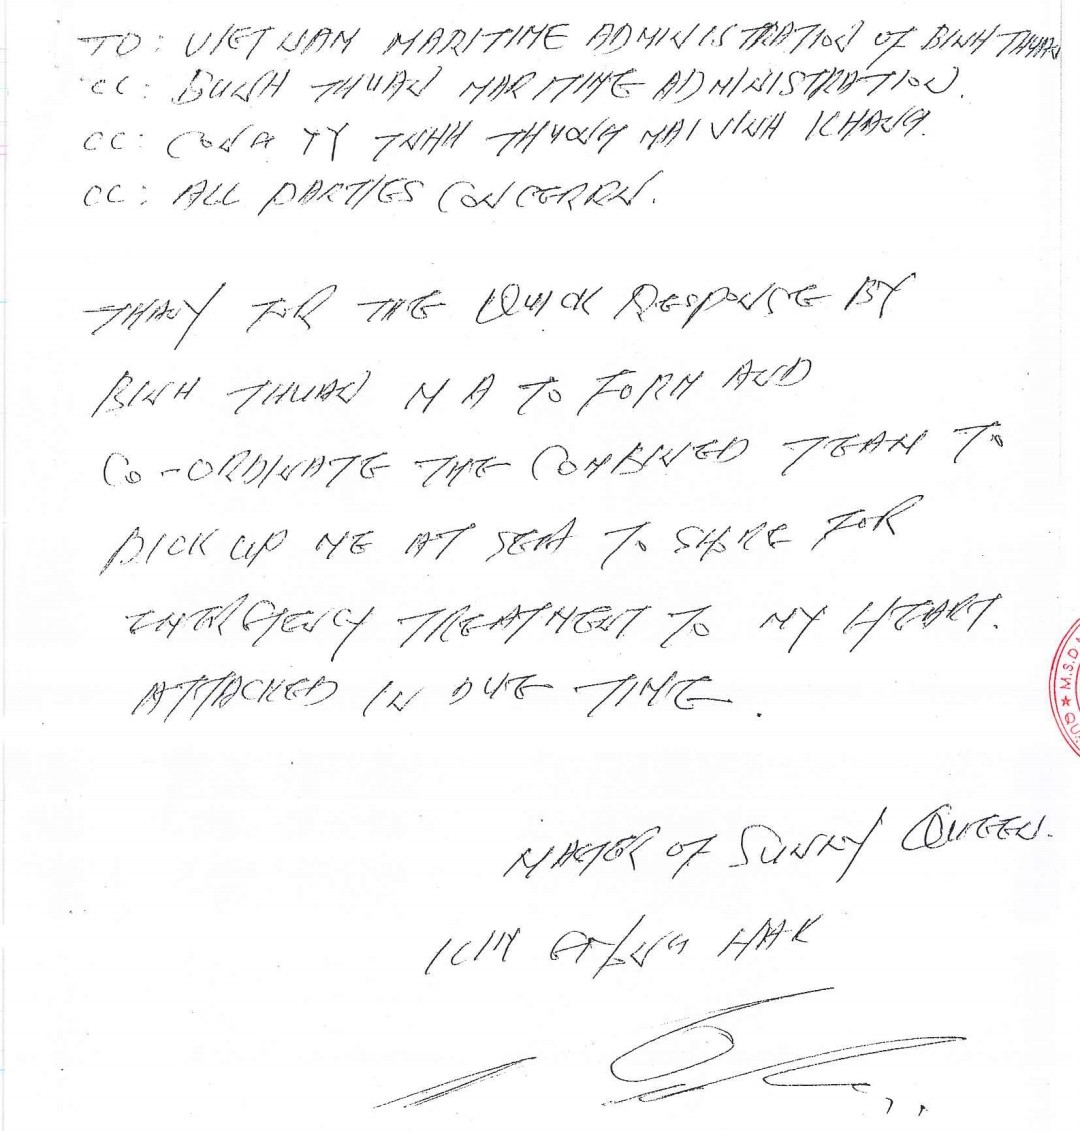 TO: VIETNAM MARITIME ADMINISTRATION OF BINH THUAN
CC: BINH THUAN MARITIME ADMINISTRATION.
CC: CONG TY TNHH THUONG MAI VINH KHANG.
CC: ALL PARTIES CONCERRN.
THANY FOR THE QUICK RESPONSE BY
BINH THUAN M A TO FORM AND
CO-ORDINATE THE COMBINED TEAM TO
PICK UP ME AT SEA TO SHORE FOR
EMERGENCY TREATMENT TO MY HEART.
ATTACKED IN DUE TIME.
MATER OF SUNNY QUEEN.
KIM HAK
★ M.S.D